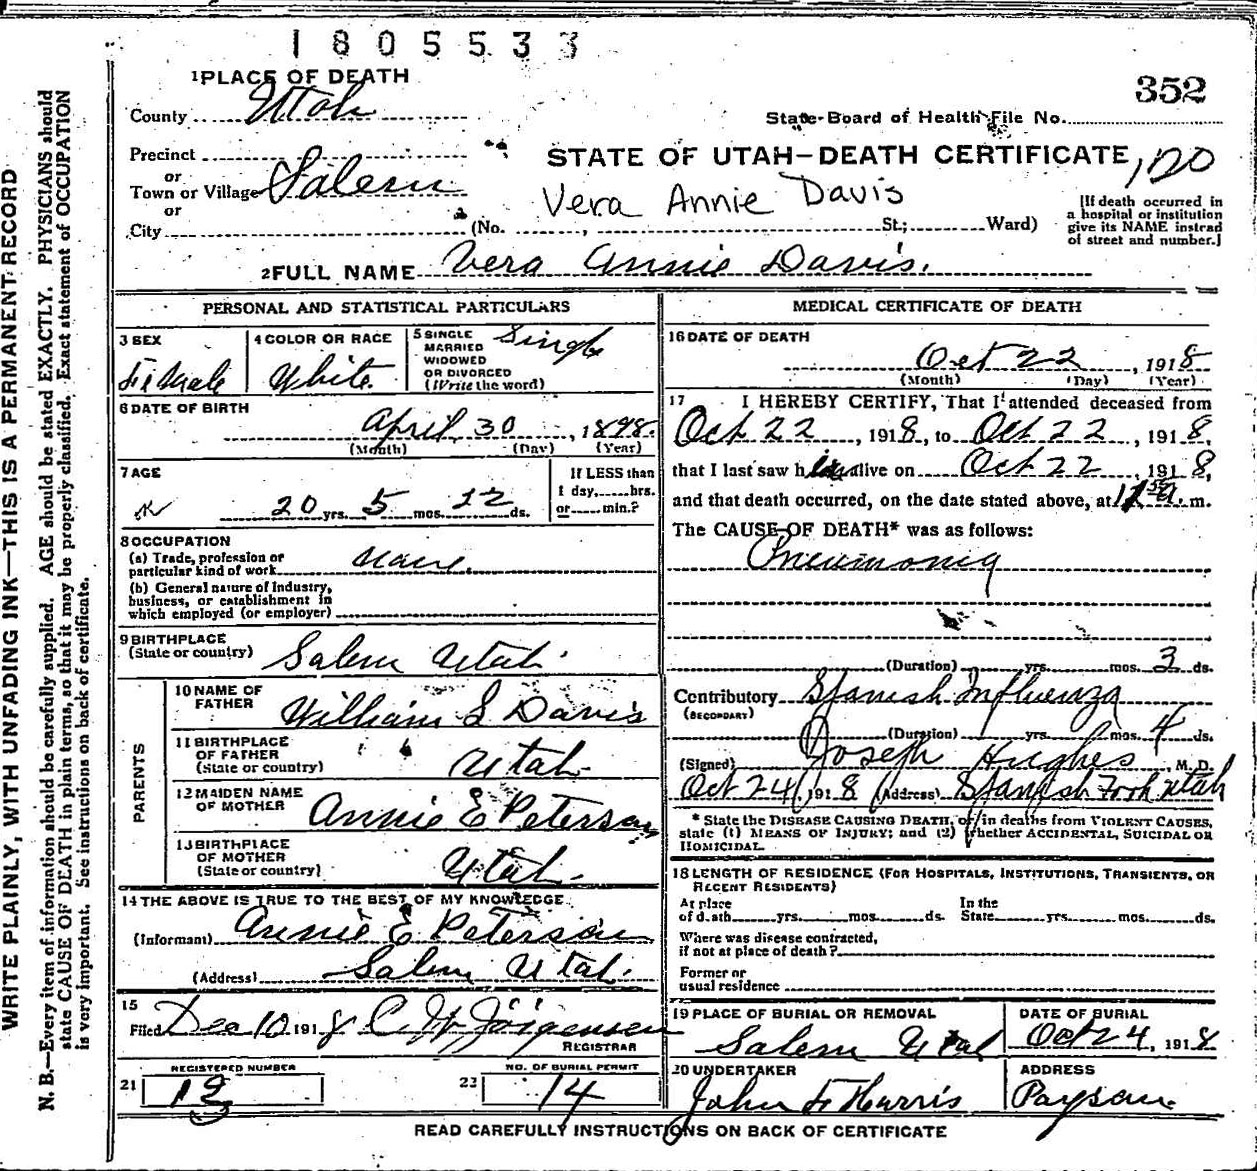 1805533
352
1 PLACE OF DEATH
County Utah
State Board of Health File No.
Precinct
or
Town or Village Salem
or
City
STATE OF UTAH—DEATH CERTIFICATE
120
Vera Annie Davis
(No. , St.; Ward)
[If death occurred in
a hospital or institution
give its NAME instead
of street and number.]
2 FULL NAME Vera Annie Davis.
PERSONAL AND STATISTICAL PARTICULARS
3 SEX
Female
4 COLOR OR RACE
White
5 SINGLE
MARRIED
WIDOWED
OR DIVORCED
(Write the word)
Single
6 DATE OF BIRTH
April 30, 1898.
(Month) (Day) (Year)
7 AGE
20 yrs. 5 mos. 22 ds.
If LESS than
1 day, hrs.
or min.?
8 OCCUPATION
(a) Trade, profession or
particular kind of work
(b) General nature of industry,
business, or establishment in
which employed (or employer)
9 BIRTHPLACE
(State or country) Salem Utah.
PARENTS
10 NAME OF
FATHER
William S Davis
11 BIRTHPLACE
OF FATHER
(State or country) Utah
12 MAIDEN NAME
OF MOTHER
Annie E Peterson
13 BIRTHPLACE
OF MOTHER
(State or country) Utah.
14 THE ABOVE IS TRUE TO THE BEST OF MY KNOWLEDGE
(Informant) Annie E Peterson
(Address) Salem Utah.
15
Filed Dec 10 1918 C. W. Jorgensen
REGISTRAR
21 REGISTERED NUMBER
22 NO. OF BURIAL PERMIT
14
MEDICAL CERTIFICATE OF DEATH
16 DATE OF DEATH
Oct 22, 1918
(Month) (Day) (Year)
17 I HEREBY CERTIFY, That I attended deceased from
Oct 22, 1918, to Oct 22, 1918,
that I last saw h alive on Oct 22 1918,
and that death occurred, on the date stated above, at m.
The CAUSE OF DEATH* was as follows:
Pneumonia
(Duration) yrs. mos. 3 ds.
Contributory Spanish Influenza
(SECONDARY)
(Duration) yrs. mos. 4 ds.
(Signed) Joseph Hughes, M. D.
Oct 24, 1918 (Address) Spanish Fork Utah
* State the DISEASE CAUSING DEATH, or in deaths from VIOLENT CAUSES,
state (1) MEANS OF INJURY; and (2) whether ACCIDENTAL, SUICIDAL OR
HOMICIDAL.
18 LENGTH OF RESIDENCE (FOR HOSPITALS, INSTITUTIONS, TRANSIENTS, OR
RECENT RESIDENTS)
At place
of death yrs. mos. ds.
In the
State yrs. mos. ds.
Where was disease contracted,
if not at place of death?
Former or
usual residence
19 PLACE OF BURIAL OR REMOVAL
Salem Utah
DATE OF BURIAL
Oct 24, 1918
20 UNDERTAKER
John F Harris
ADDRESS
Payson
READ CAREFULLY INSTRUCTIONS ON BACK OF CERTIFICATE
WRITE PLAINLY, WITH UNFADING INK—THIS IS A PERMANENT RECORD
N. B.—Every item of information should be carefully supplied. AGE should be stated EXACTLY. PHYSICIANS should
state CAUSE OF DEATH in plain terms, so that it may be properly classified. Exact statement of OCCUPATION
is very important. See instructions on back of certificate.